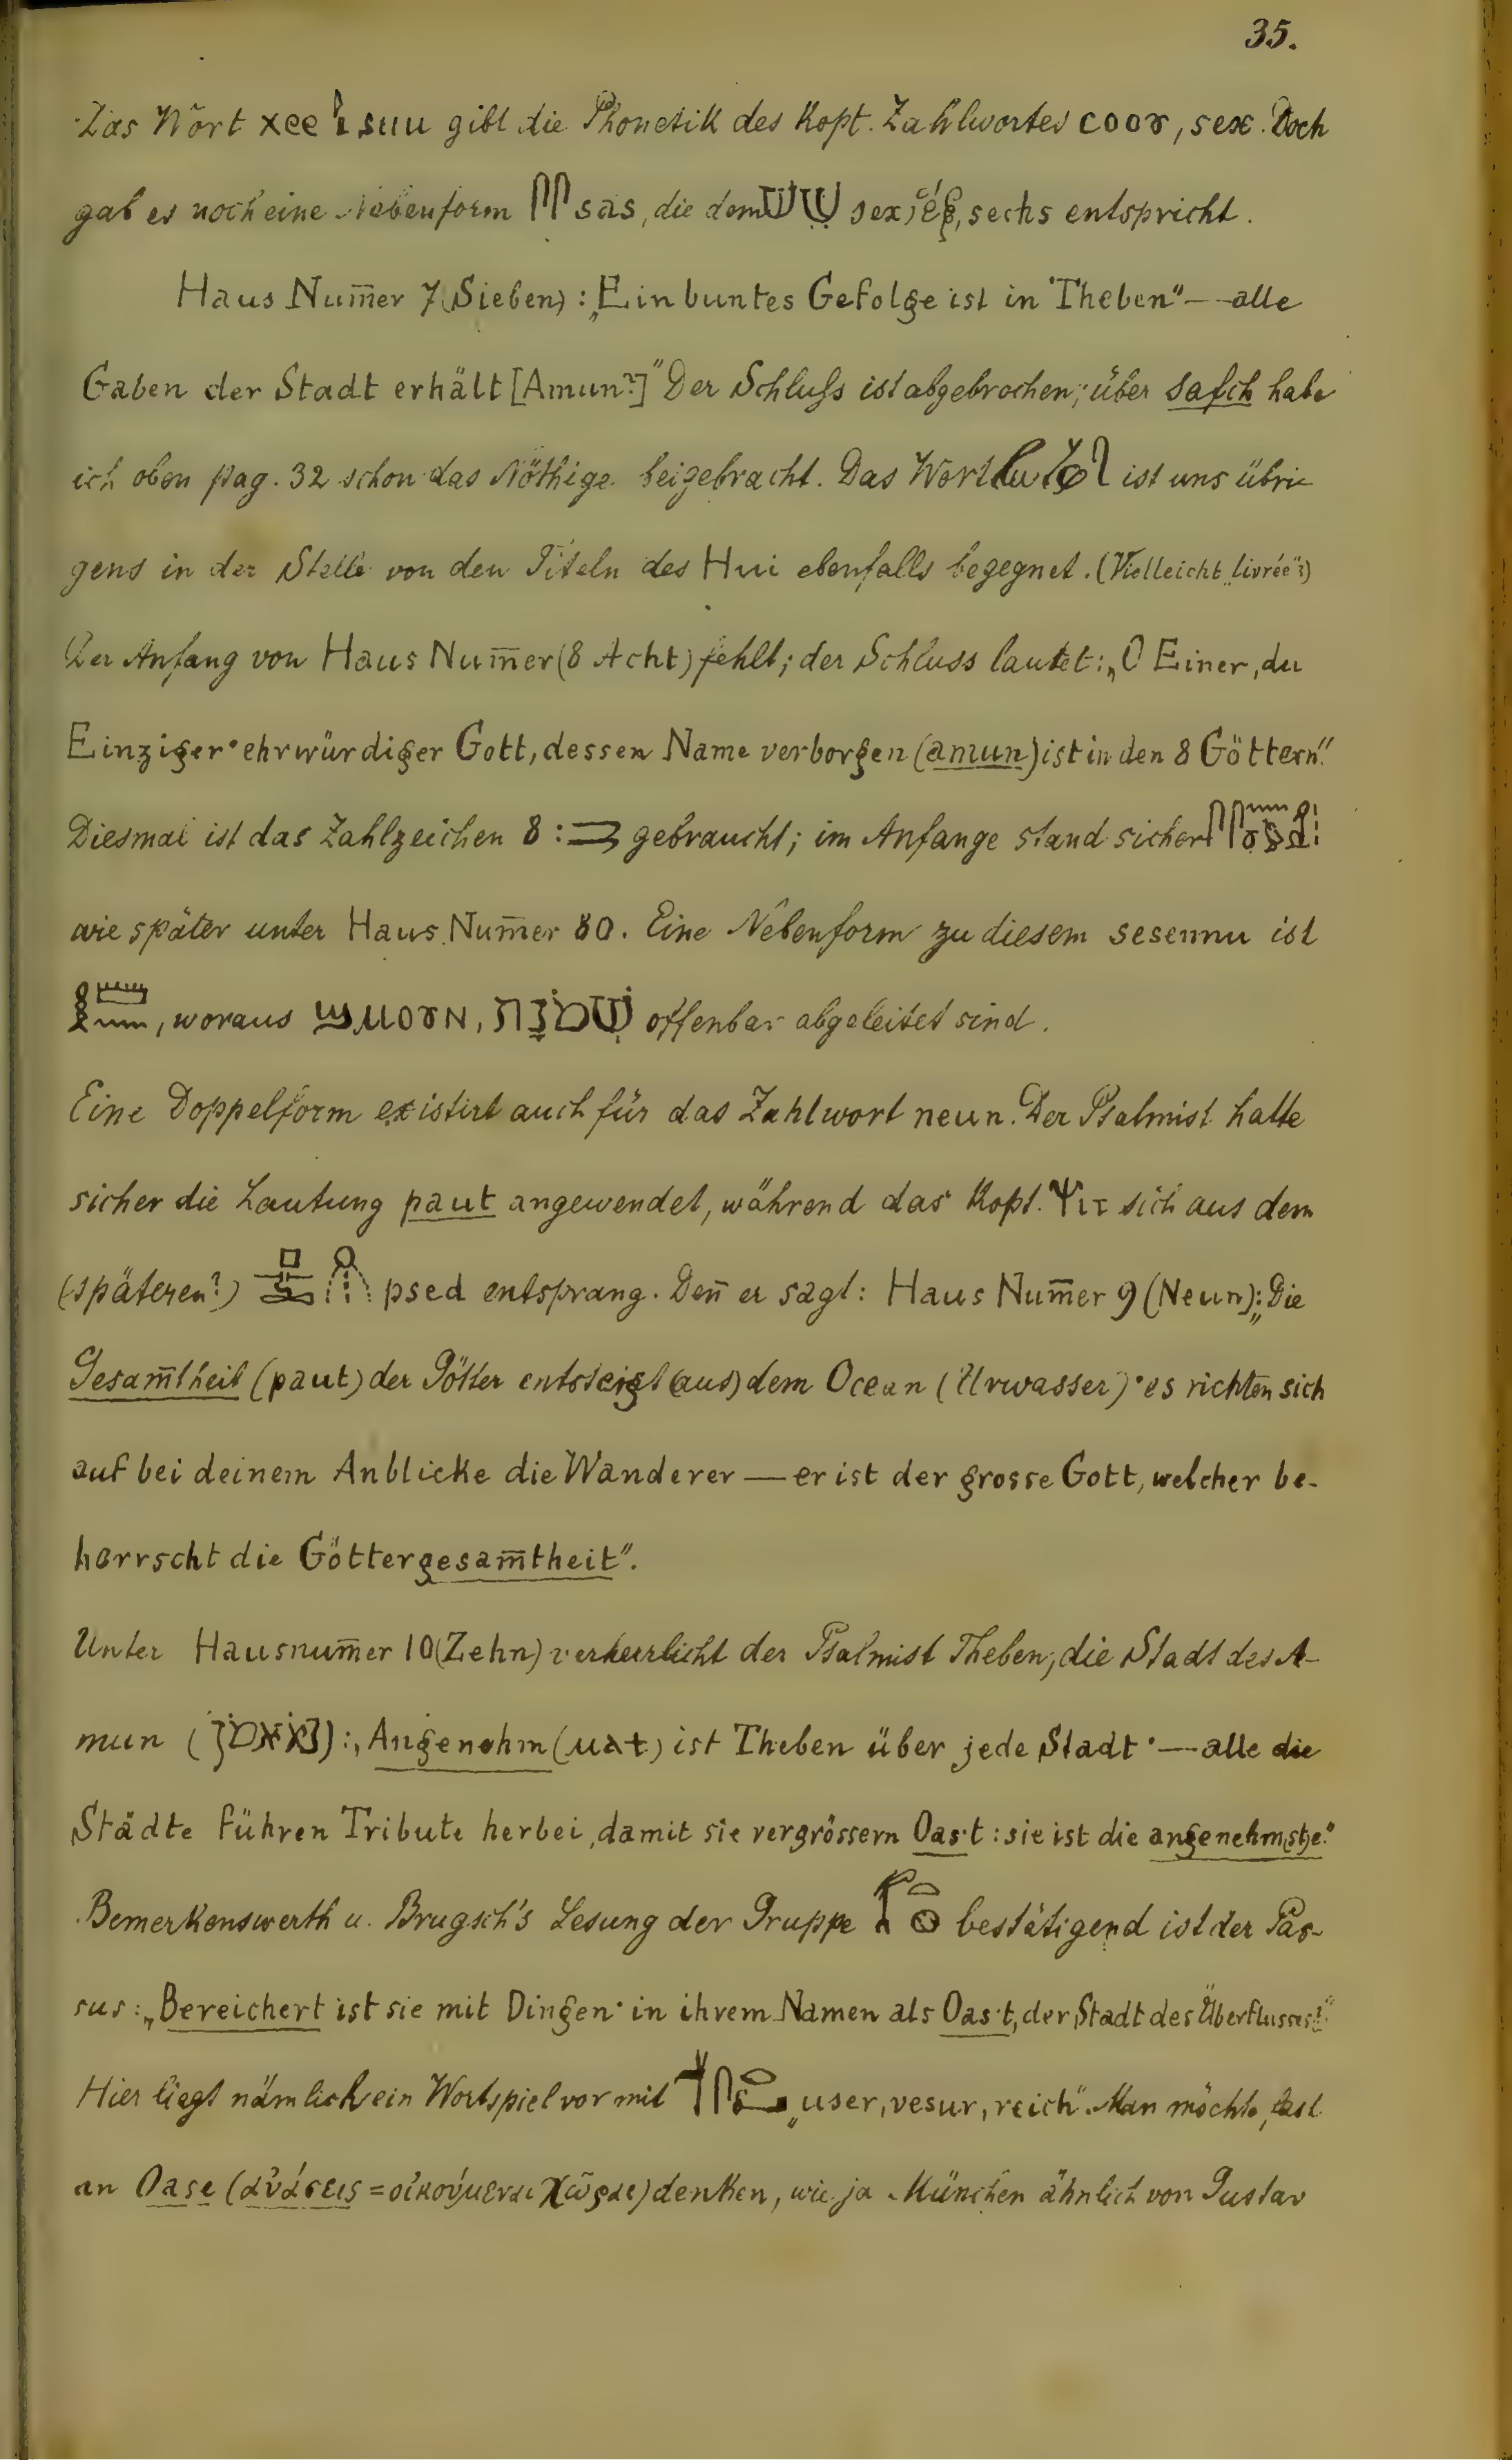 35.
Das Wort suu gibt die Phonetik des kopt. Zahlwortes ⲥⲟⲟⲩ, sex. Doch
gab es noch eine Nebenform sas, die dem שׁשׁ sex, ἕξ, sechs entspricht.
Haus Num̅er 7 (Sieben): „Ein buntes Gefolge ist in Theben" — alle
Gaben der Stadt erhält [Amun?]" Der Schluss ist abgebrochen; über safch habe
ich oben pag. 32 schon das Nöthige beigebracht. Das Wort ist uns übri-
gens in der Stelle von den Titeln des Hui ebenfalls begegnet. (Vielleicht „livrée"?)
Der Anfang von Haus Num̅er (8 Acht) fehlt; der Schluss lautet: „O Einer, du
Einziger • ehrwürdiger Gott, dessen Name verborgen (amun) ist in den 8 Göttern".
Diesmal ist das Zahlzeichen 8 : gebraucht; im Anfange stand sicher
wie später unter Haus Num̅er 80. Eine Nebenform zu diesem sesennu ist
, woraus ϣⲙⲟⲩⲛ, שׁמנה offenbar abgeleitet sind.
Eine Doppelform existirt auch für das Zahlwort neun. Der Psalmist hatte
sicher die Lautung paut angewendet, während das kopt. ⲯⲓⲧ sich aus dem
(späteren?) psed entsprang. Den̅ er sagt: Haus Num̅er 9 (Neun): „Die
Gesam̅theit (paut) der Götter entsteigt (aus) dem Ocean (Urwasser) • es richten sich
auf bei deinem Anblicke die Wanderer — er ist der grosse Gott, welcher be-
herrscht die Göttergesam̅theit".
Unter Hausnum̅er 10 (Zehn) verherrlicht der Psalmist Theben, die Stadt des A-
mun (נא אמן): „Angenehm (ⲙⲁⲧ) ist Theben über jede Stadt • — alle die
Städte führen Tribute herbei, damit sie vergrössern Oas·t : sie ist die angenehm(st)e."
Bemerkenswerth u. Brugsch's Lesung der Gruppe bestätigend ist der Pas-
sus: „Bereichert ist sie mit Dingen • in ihrem Namen als Oas·t, der Stadt des Überflusses!"
Hier liegt nämlich ein Wortspiel vor mit „user, vesur, reich". Man möchte fast
an Oase (αὐάσεις = οἰκούμεναι χῶραι) denken, wie ja München ähnlich von Gustav